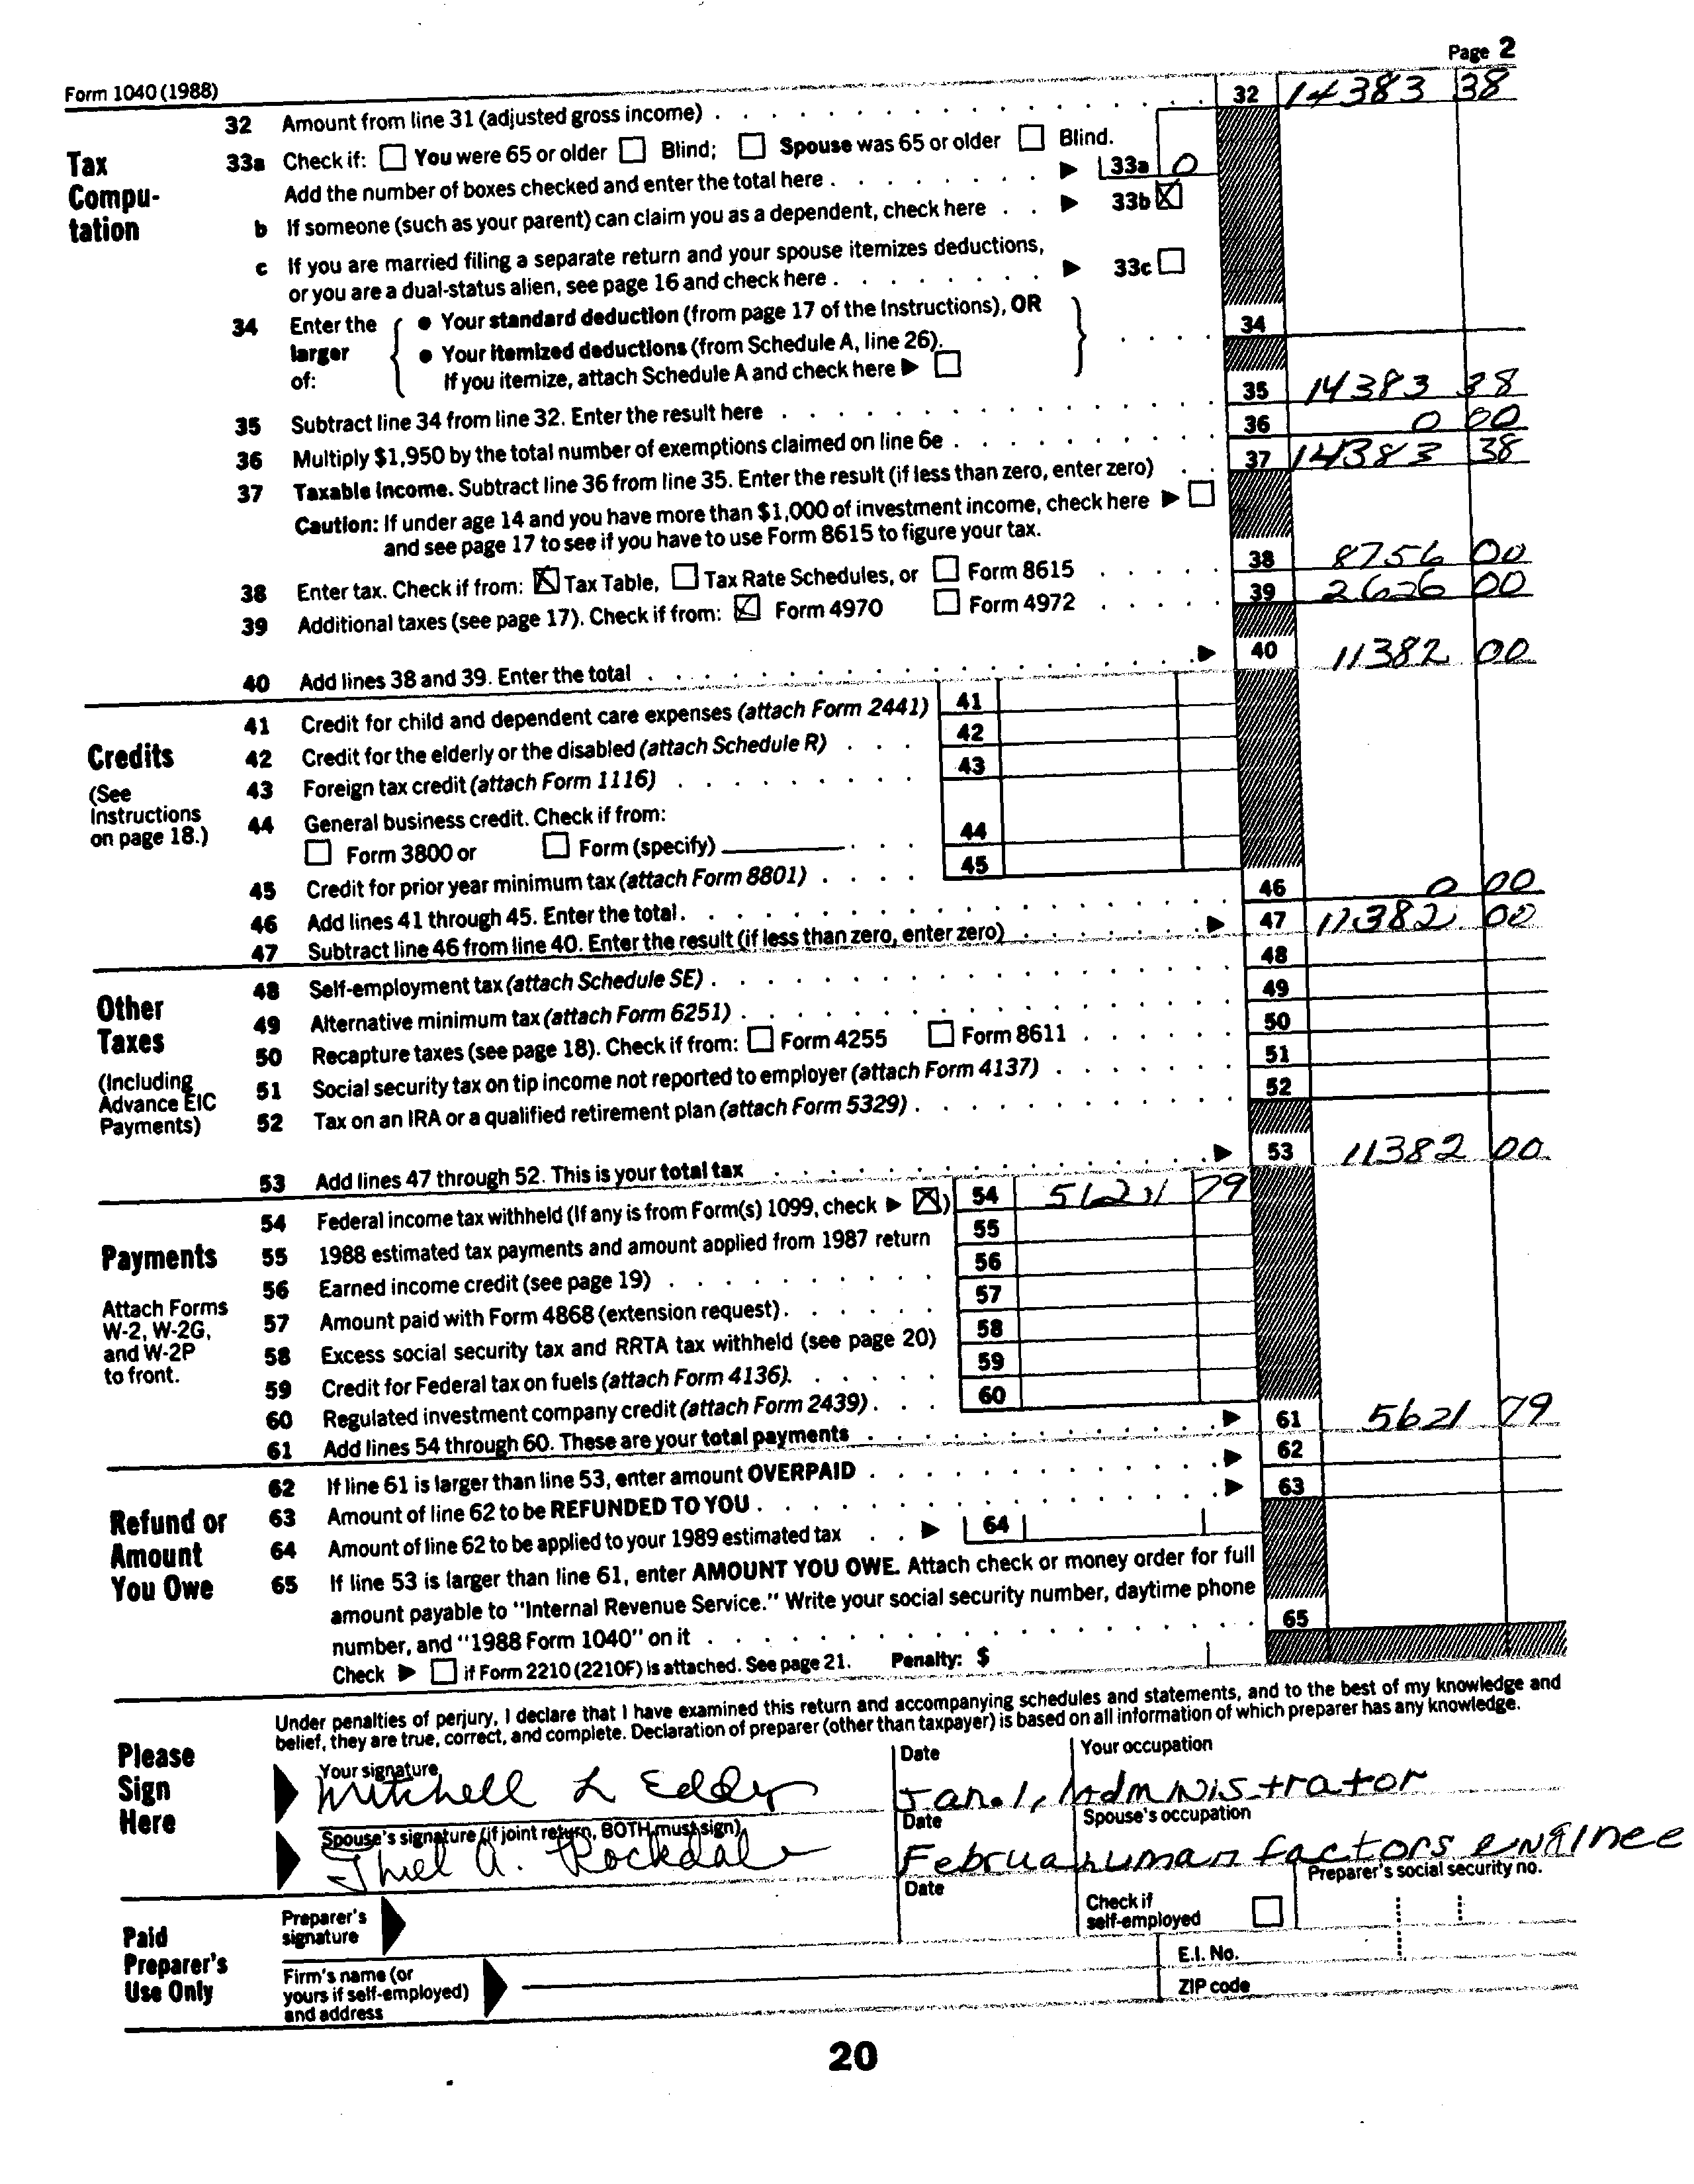 Page 2
Form 1040 (1988)
32 Amount from line 31 (adjusted gross income) . . . . . . . . . . . . 32 14383 38
Tax Compu-tation
33a Check if: You were 65 or older Blind; Spouse was 65 or older Blind.
Add the number of boxes checked and enter the total here . . . . . . . . ▶ 33a 0
b If someone (such as your parent) can claim you as a dependent, check here . . ▶ 33b X
c If you are married filing a separate return and your spouse itemizes deductions,
or you are a dual-status alien, see page 16 and check here . . . . . . . ▶ 33c
34 Enter the larger of: { ● Your standard deduction (from page 17 of the Instructions), OR
● Your itemized deductions (from Schedule A, line 26).
If you itemize, attach Schedule A and check here ▶ } . . . . 34
35 Subtract line 34 from line 32. Enter the result here . . . . . . . . . . 35 14383 38
36 Multiply $1,950 by the total number of exemptions claimed on line 6e . . . . . . . 36 0 00
37 Taxable income. Subtract line 36 from line 35. Enter the result (if less than zero, enter zero) . . 37 14383 38
Caution: If under age 14 and you have more than $1,000 of investment income, check here ▶
and see page 17 to see if you have to use Form 8615 to figure your tax.
38 Enter tax. Check if from: X Tax Table, Tax Rate Schedules, or Form 8615 . . . . . 38 8756 00
39 Additional taxes (see page 17). Check if from: X Form 4970 Form 4972 . . . . . 39 2626 00
40 Add lines 38 and 39. Enter the total . . . . . . . . . . . ▶ 40 11382 00
Credits
(See Instructions on page 18.)
41 Credit for child and dependent care expenses (attach Form 2441) 41
42 Credit for the elderly or the disabled (attach Schedule R) . . . 42
43 Foreign tax credit (attach Form 1116) . . . . . . . . 43
44 General business credit. Check if from:
Form 3800 or Form (specify) . . . 44
45 Credit for prior year minimum tax (attach Form 8801) . . . . 45
46 Add lines 41 through 45. Enter the total . . . . . . . . . . . 46 0 00
47 Subtract line 46 from line 40. Enter the result (if less than zero, enter zero) . . . . . ▶ 47 11382 00
Other Taxes
(Including Advance EIC Payments)
48 Self-employment tax (attach Schedule SE) . . . . . . . . . . 48
49 Alternative minimum tax (attach Form 6251) . . . . . . . . . . 49
50 Recapture taxes (see page 18). Check if from: Form 4255 Form 8611 . . . . . . 50
51 Social security tax on tip income not reported to employer (attach Form 4137) . . . . . . 51
52 Tax on an IRA or a qualified retirement plan (attach Form 5329) . . . . . . . . . 52
53 Add lines 47 through 52. This is your total tax . . . . . . . . . ▶ 53 11382 00
Payments
Attach Forms W-2, W-2G, and W-2P to front.
54 Federal income tax withheld (If any is from Form(s) 1099, check ▶ X) 54 5621 79
55 1988 estimated tax payments and amount applied from 1987 return 55
56 Earned income credit (see page 19) . . . . . . . . 56
57 Amount paid with Form 4868 (extension request) . . . . . 57
58 Excess social security tax and RRTA tax withheld (see page 20) 58
59 Credit for Federal tax on fuels (attach Form 4136). . . . . . 59
60 Regulated investment company credit (attach Form 2439) . . . 60
61 Add lines 54 through 60. These are your total payments . . . . . . . ▶ 61 5621 79
Refund or Amount You Owe
62 If line 61 is larger than line 53, enter amount OVERPAID . . . . . . . ▶ 62
63 Amount of line 62 to be REFUNDED TO YOU . . . . . . . . . ▶ 63
64 Amount of line 62 to be applied to your 1989 estimated tax . . ▶ 64
65 If line 53 is larger than line 61, enter AMOUNT YOU OWE. Attach check or money order for full
amount payable to "Internal Revenue Service." Write your social security number, daytime phone
number, and "1988 Form 1040" on it . . . . . . . . . . . 65
Check ▶ if Form 2210 (2210F) is attached. See page 21. Penalty: $
Please Sign Here
Under penalties of perjury, I declare that I have examined this return and accompanying schedules and statements, and to the best of my knowledge and
belief, they are true, correct, and complete. Declaration of preparer (other than taxpayer) is based on all information of which preparer has any knowledge.
Your signature Date Your occupation
Mitchell L Eddy Jan. 1, Administrator
Spouse's signature (if joint return, BOTH must sign) Date Spouse's occupation
Thiel A. Rockdale Februa human factors enginee
Paid Preparer's Use Only
Preparer's signature Date Check if self-employed Preparer's social security no.
Firm's name (or yours if self-employed) and address E.I. No.
ZIP code
20